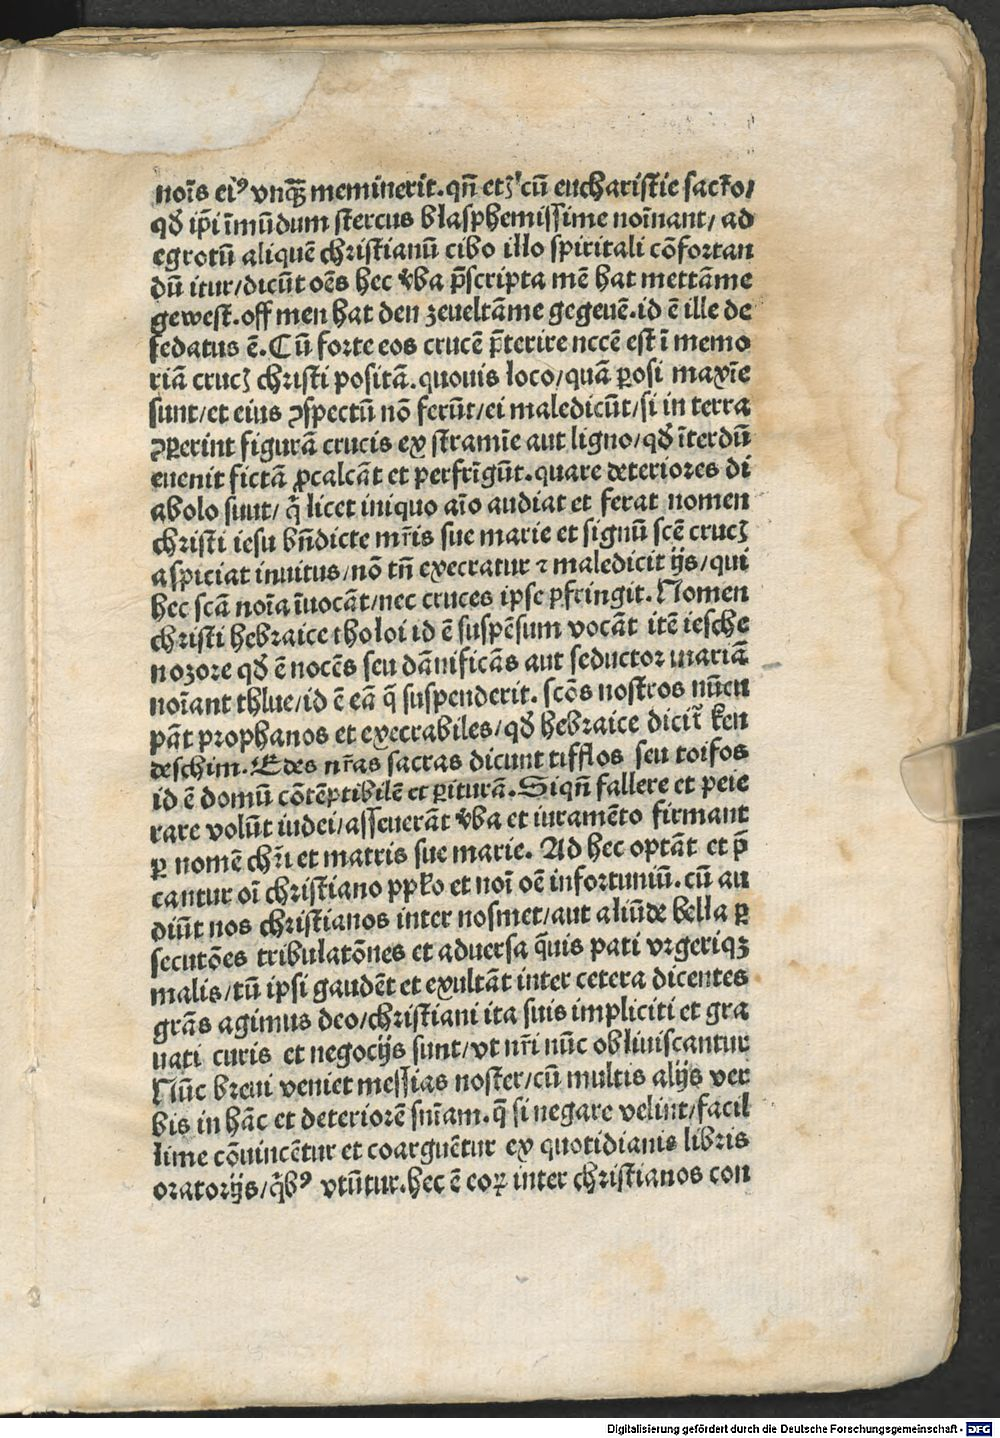 noīs ei⁹ vnq̄ꝫ meminerit. qn̄ etꝫ cū eucharistie sacr̄o/
qd̛ ip̄i īmūdum stercus blasphemissime noīnant/ ad
egrotū aliquē christianū cibo illo spiritali cōfortan
dū itur/dicūt oēs hec v̛ba p̄scripta mē hat mettāme
gewest. off men hat den zeueltāme gegeuē. id ē ille de
fedatus ē. Cū forte eos crucē p̄terire nccē est ī memo
riā crucꝫ christi positā. quouis loco/quā ꝑosi maxīe
sunt/et eius ꝯspectū nō ferūt/ei maledicūt/si in terra
ꝯꝑerint figurā crucis ex stramīe aut ligno/qd̛ īterdū
euenit fictā ꝓcalcāt et perfrīgūt. quare deteriores di
abolo sunt/ q̄ licet iniquo aīo audiat et ferat nomen
christi iesu bn̄dicte mr̄is sue marie et signū scē crucꝫ
aspiciat inuitus/nō tn̄ execratur ⁊ maledicit ijs/qui
hec scā noīa īuocāt/nec cruces ipse ꝑfringit. Nomen
christi hebraice tholoi id ē suspēsum vocāt itē iesche
nozore qd̛ ē nocēs seu dānificās aut seductor mariā
noīant thlue/id ē eā q̄ suspenderit. scōs nostros nūcu
pāt prophanos et execrabiles/qd̛ hebraice dicit̄ ken
deschim. Edes nr̄as sacras dicunt tifflos seu toifos
id ē domū cōtēptibilē et ꝑiturā. Siqn̄ fallere et peie
rare volūt iudei/asseuerāt v̛ba et iuramēto firmant
ꝑ nomē chr̄i et matris sue marie. Ad hec optāt et p̄
cantur oī christiano ppl̄o et noī oē infortuniū. cū au
diūt nos christianos inter nosmet/aut aliūde bella ꝑ
secutōes tribulatōnes et aduersa q̄uis pati vrgeriqꝫ
malis/tū ipsi gaudēt et exultāt inter cetera dicentes
grās agimus deo/christiani ita suis impliciti et gra
uati curis et negocijs sunt/vt nr̄i nūc obliuiscantur
Nūc breui veniet messias noster/cū multis alijs ver
bis in hāc et deteriorē sn̄iam. q̄ si negare velint/facil
lime cōuincētur et coarguētur ex quotidianis libris
oratorijs/q̄b⁹ vtūtur. hec ē eoꝝ inter christianos con
Digitalisierung gefördert durch die Deutsche Forschungsgemeinschaft - DFG